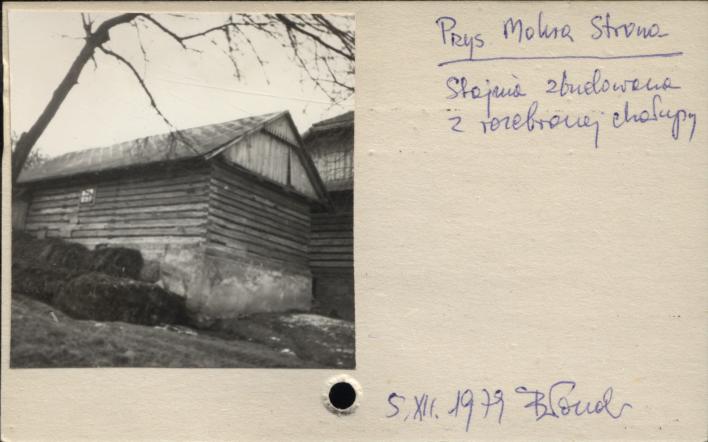 Przys. Mokra Strona
Stajnia zbudowana
z rozebranej chałupy
5.XII. 1979